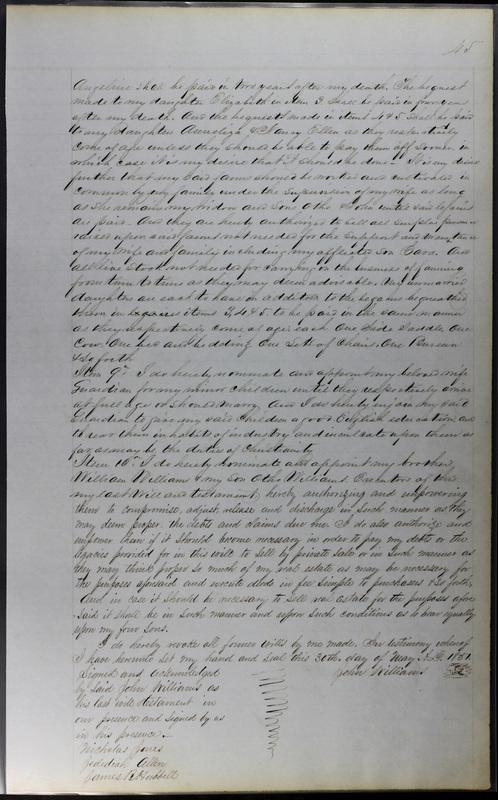 45
Angeline shall be paid in two years after my death. The bequest
made to my daughter Elizabeth in item 3 shall be paid in four years
after my death. And the bequests made in items 4 & 5 shall be paid
to my daughters & Nancy Ellen as they respectively
come of age unless they should be able to pay them off sooner in
which case it is my desire that it should be done. It is my desire
further that my said farm should be worked and cultivated in
common by my family under the supervision of my wife as long
as she remains my widow and sons Otho & John until said legacies
are paid. And they are hereby authorized to sell all surplus produce
raised upon said farms not needed for the support and maintenance
of my wife and family including my afflicted son Ezra. And
all live stock not needed for carrying on the business of farming
from time to time as they may deem advisable. My unmarried
daughters are each to have in addition to the legacies bequeathed
them in items 3, 4 & 5 to be paid in the same manner
as they respectively come of age each One Side Saddle One
Cow. One bed and bedding One Sett of Chairs. One Bureau
& So forth
Item 9th I do hereby nominate and appoint my beloved wife
Guardian for my minor children until they respectively arrive
at full age or should marry. And I do hereby enjoin my said
Guardian to give my said children a good English education and
to rear them in habits of industry and inculcate upon them as
far as may be the duties of Christianity
Item 10th I do hereby nominate and appoint my brother
William Williams & my son Otho Williams Executors of this
my last Will and testament, hereby authorizing and empowering
them to compromise, adjust, release and discharge in such manner as they
may deem proper the debts and claims due me. I do also authorize and
empower them if it should become necessary in order to pay my debts or the
legacies provided for in this will to sell by private sale or in such manner as
they may think proper so much of my real estate as may be necessary for
the purpose aforesaid and execute deeds in fee simple to purchasers & So forth,
And in case it should be necessary to sell real estate for the purposes afore-
said it shall be in such manner and upon such conditions as to bear equally
upon my four sons.
I do hereby revoke all former wills by me made. In testimony whereof
I have hereunto set my hand and seal this 30th day of May A.D. 1851.
Signed and acknowledged John Williams
by said John Williams as
his last will & testament in
our presence and signed by us
in his presence.
Nicholas Jones
Jedediah Allen
James B. Hubbell